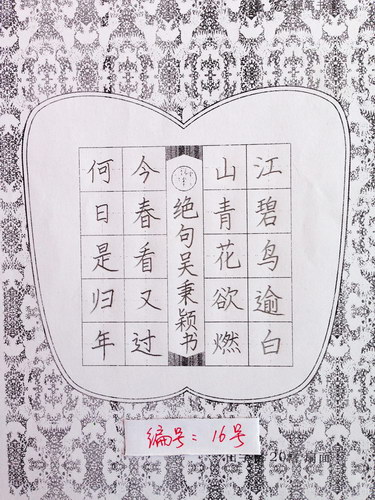 江碧鸟逾白
山青花欲燃
绝句吴秉颖书
今春看又过
何日是归年
编号：16号